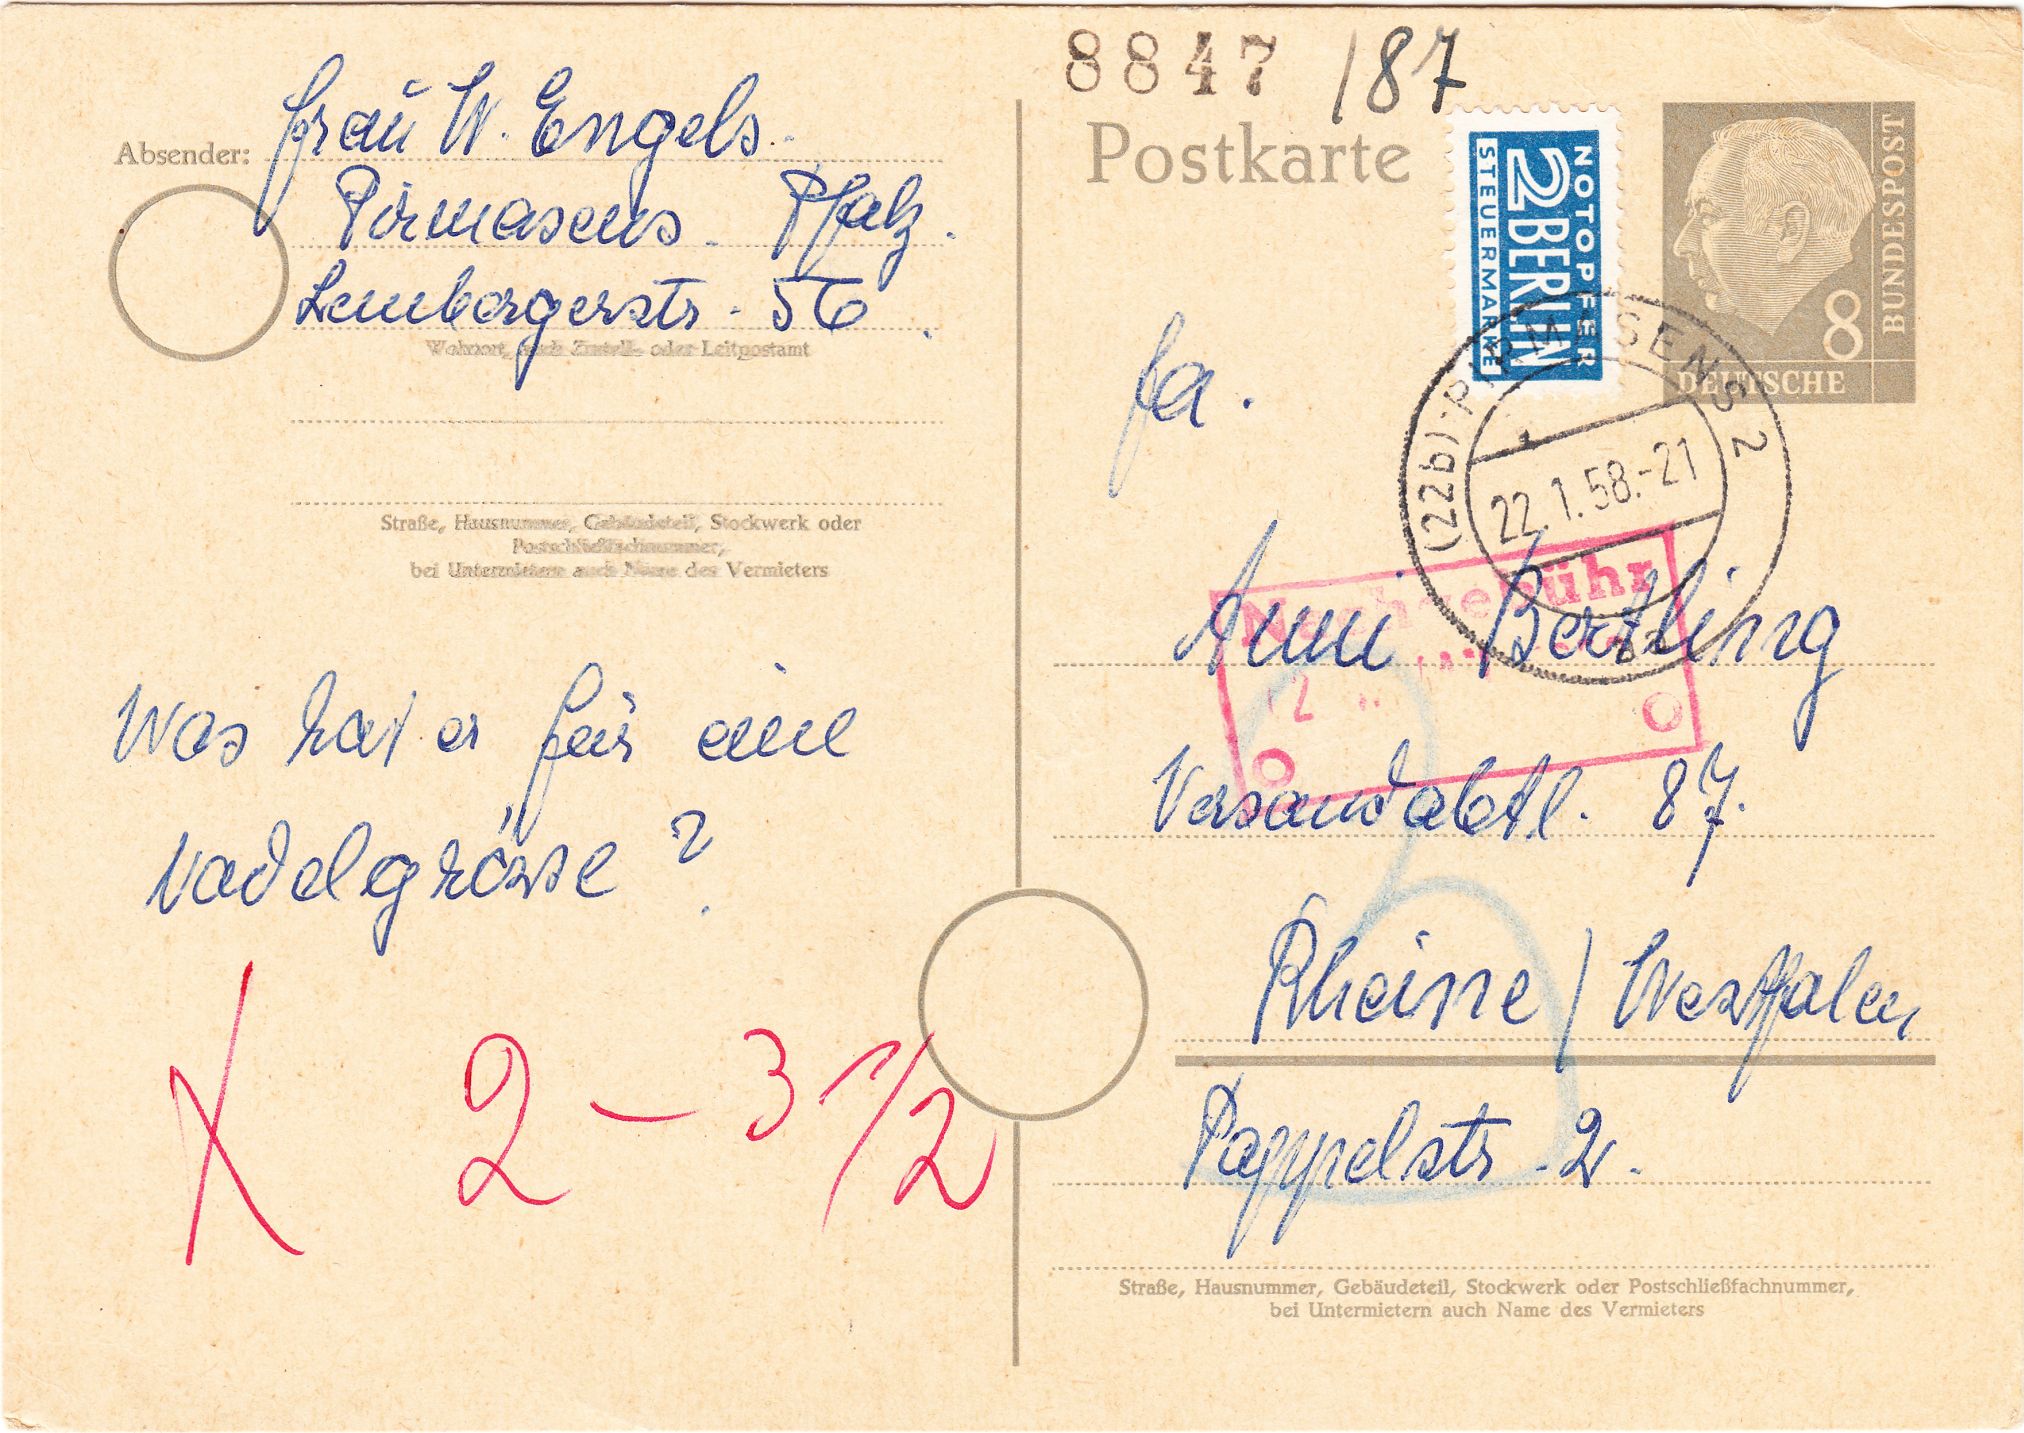 8847 /87
Postkarte
NOTOPFER
2 BERLIN
STEUERMARKE
DEUTSCHE
BUNDESPOST
8
Absender: Frau W. Engels.
Pirmasens. Pfalz.
Lembergerstr. 56
Wohnort, auch Zustell- oder Leitpostamt
Straße, Hausnummer, Gebäudeteil, Stockwerk oder
Postschließfachnummer,
bei Untermietern auch Name des Vermieters
Was hat er für eine
Nadelgrösse?
X 2 – 3 1/2
(22b) PIRMASENS 2
22.1.58.-21
Nachgebühr
Fa.
Anni Bertling
Versandabtl. 87.
Rheine / Westfalen
Pappelstr. 2.
Straße, Hausnummer, Gebäudeteil, Stockwerk oder Postschließfachnummer,
bei Untermietern auch Name des Vermieters